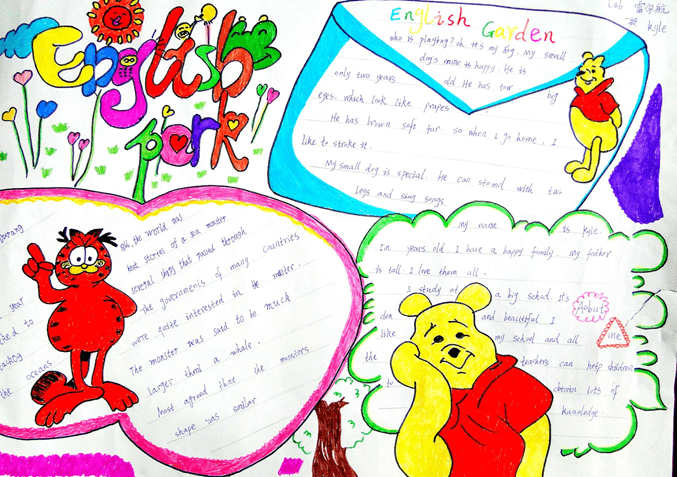 English
park
English Garden
雷
kyle
who is playting? oh it's my dog. My small
dog's name is happy. He is
only two years old He has tow big
eyes. which look like
He has brown soft fur. so when I go home, I
like to stroke it.
My small dog is special. He can stand with two
legs and sing songs
the world was
stories of a sea monster
several ships that passed through
The governments of many countries
were quite interested in the matter.
The monster was said to be much
larger than a whale.
Most agreed that the monsters
shape was similar
year
to
the oceans.
my name is kyle.
In years old. I have a happy family. My father
is tall. I love them all.
I study at a big school. Its
den and beautiful. I
like my school and all
the teachers can help children
to obtain lots of
knowledge.
Aobut
me